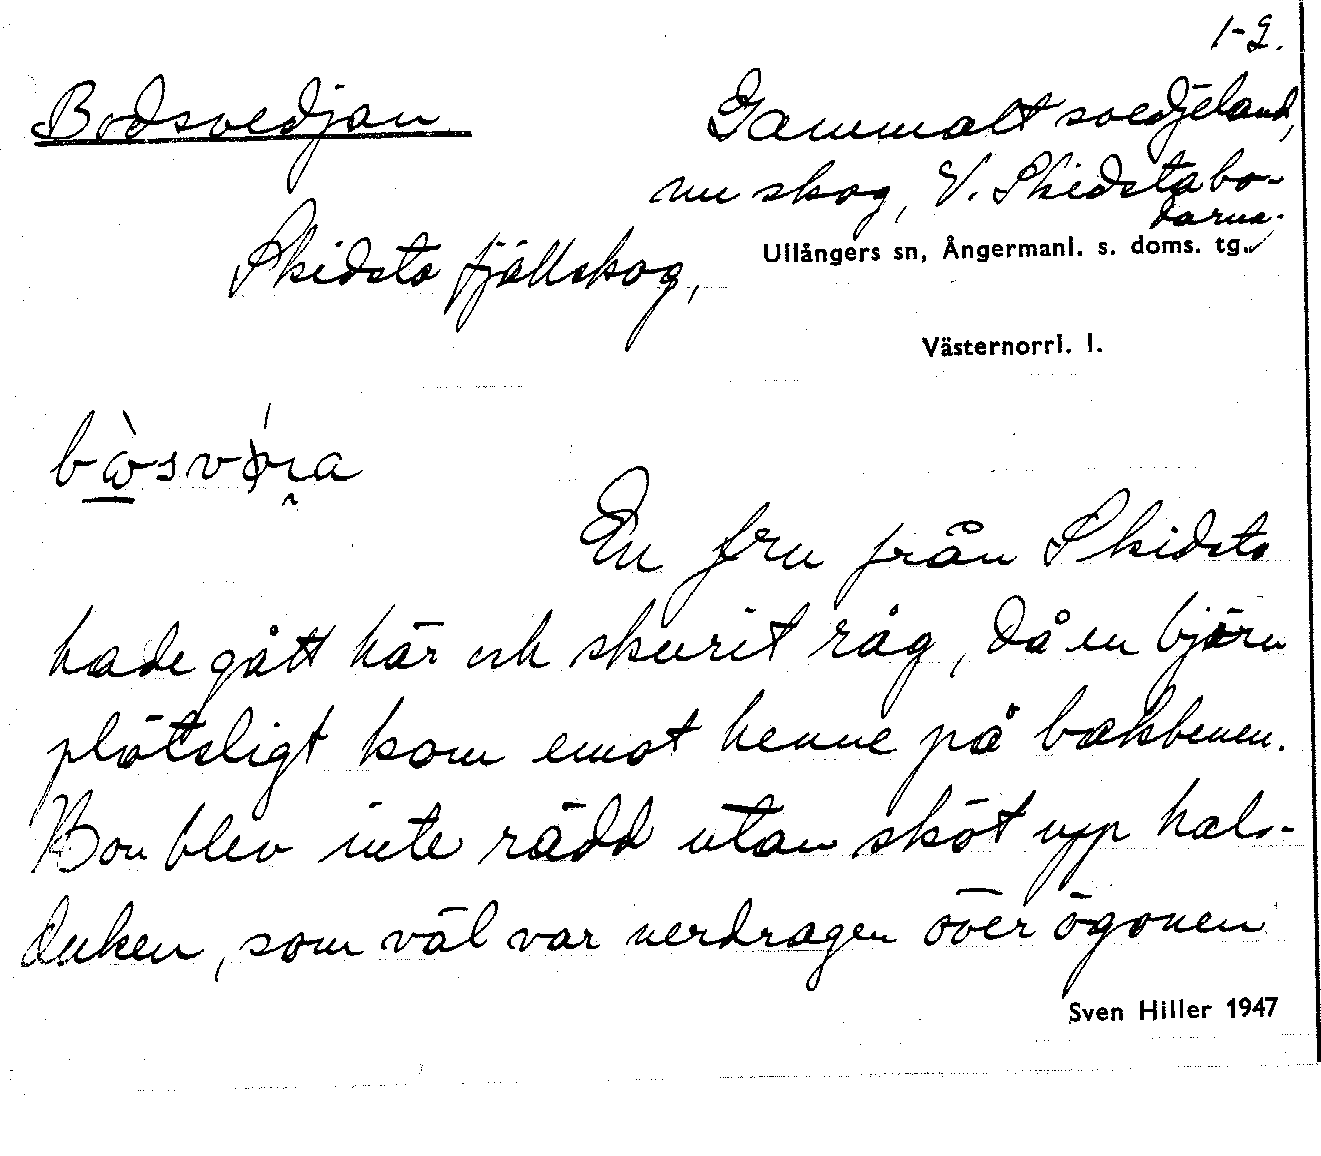 1-2.
Bodsvedjan
Gammalt svedjeland,
nu skog, V. Skidstabo-
darna.
Skidsta fjällskog,
Ullångers sn, Ångermanl. s. doms. tg.
Västernorrl. l.
En fru från Skidsta
hade gått här och skurit råg, då en björn
plötsligt kom emot henne på bakbenen.
Hon blev inte rädd utan sköt upp hals-
duken, som väl var nerdragen över ögonen
Sven Hiller 1947